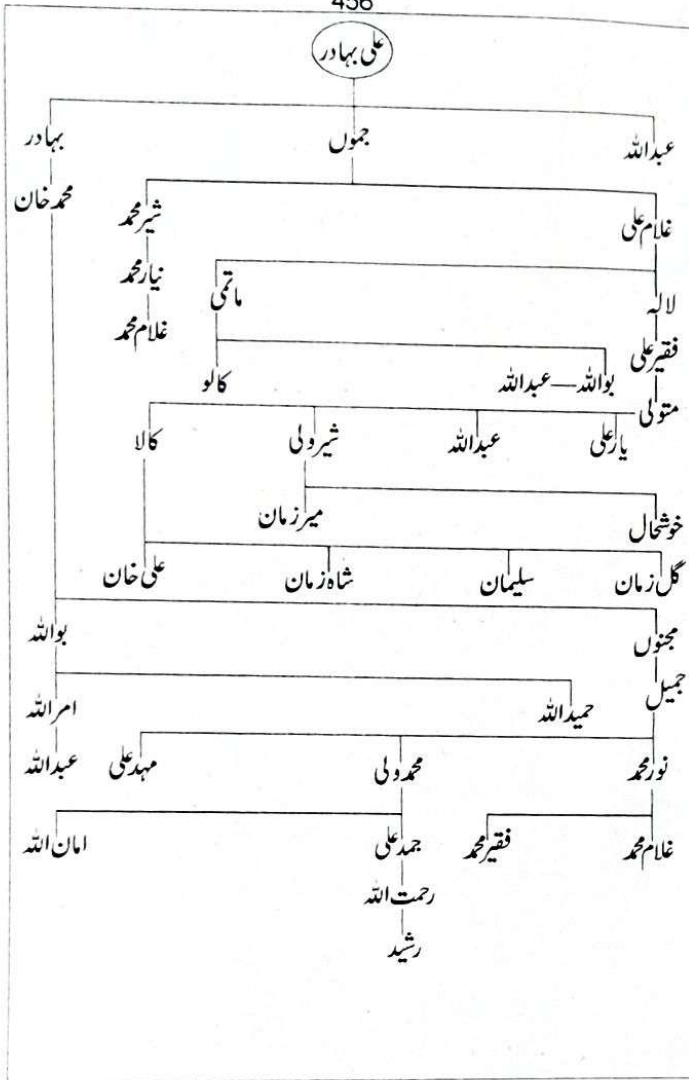 456
علی بہادر
عبداللہ جموں بہادر
محمد خان
غلام علی شیر محمد
لالہ ماتمی نیاز محمد
فقیر علی غلام محمد
بواللہ — عبداللہ کالو
متولی
یار علی عبداللہ شیر ولی کالا
خوشحال میر زمان
گل زمان سلیمان شاہ زمان علی خان
مجنوں بواللہ
جمیل حمید اللہ امر اللہ
نور محمد محمد ولی مہد علی عبداللہ
غلام محمد فقیر محمد جمد علی امان اللہ
رحمت اللہ
رشید